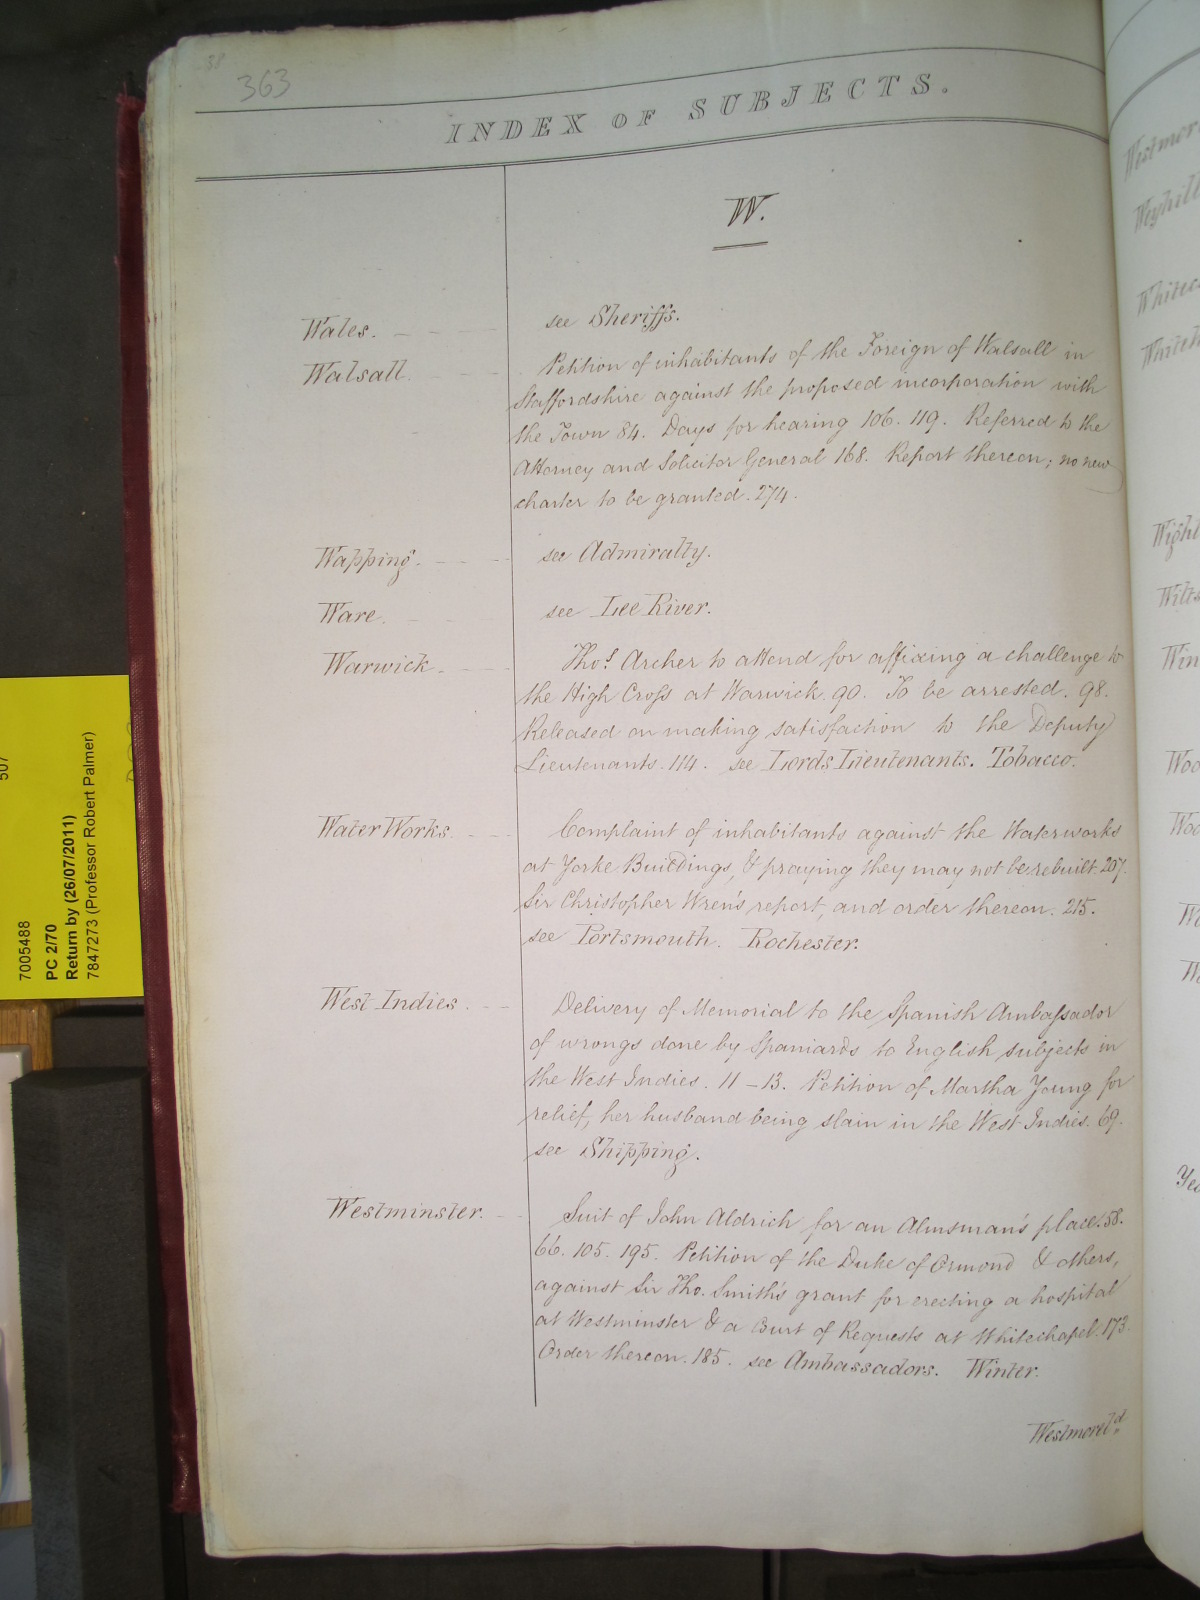 38
363
INDEX OF SUBJECTS.
W.
Wales. see Sheriffs.
Walsall. Petition of inhabitants of the Foreign of Walsall in
Staffordshire against the proposed incorporation with
the Town 84. Days for hearing 106. 119. Referred to the
Attorney and Solicitor General 168. Report thereon; no new
charter to be granted. 274.
Wapping. see Admiralty.
Ware. see Lee River.
Warwick. Thos. Archer to attend for affixing a challenge to
the High Cross at Warwick. 90. To be arrested. 98.
Released on making satisfaction to the Deputy
Lieutenants. 114. see Lords Lieutenants. Tobacco.
Water Works. Complaint of inhabitants against the Waterworks
at Yorke Buildings, & praying they may not be rebuilt. 207.
Sir Christopher Wren's report, and order thereon. 215.
see Portsmouth. Rochester.
West Indies. Delivery of Memorial to the Spanish Ambassador
of wrongs done by Spaniards to English subjects in
the West Indies. 11-13. Petition of Martha Young for
relief, her husband being slain in the West Indies. 69.
see Shipping.
Westminster. Suit of John Aldrich for an Almsman's place. 58.
66. 105. 195. Petition of the Duke of Ormond & others,
against Sir Tho. Smith's grant for erecting a hospital
at Westminster & a Court of Requests at Whitechapel. 173.
Order thereon. 185. see Ambassadors. Winter.
Westmorel.d
507
7005488
PC 2/70
Return by (26/07/2011)
7847273 (Professor Robert Palmer)
Weyhill
Wight
Wilts
Win
Woo
Woo